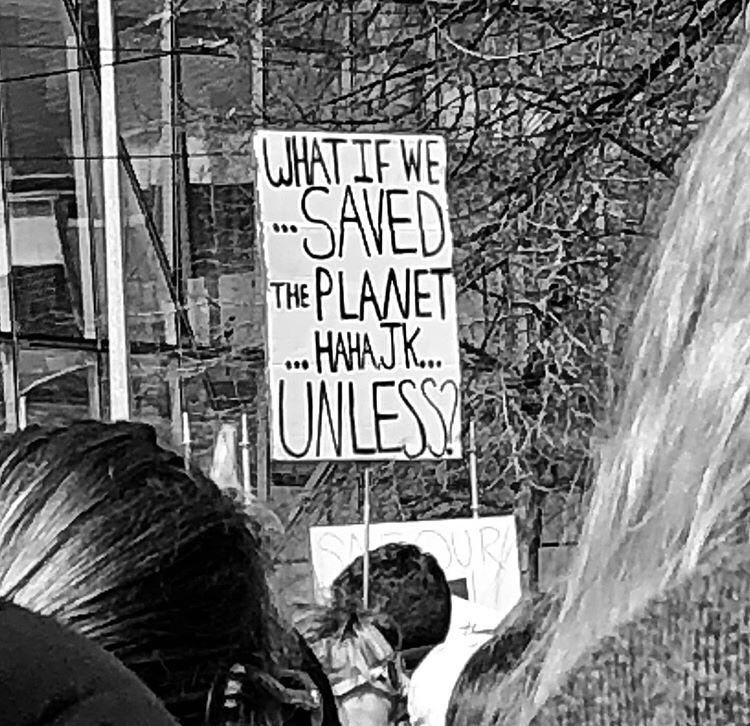 WHAT IF WE
...SAVED
THE PLANET
...HAHA, JK...
UNLESS?